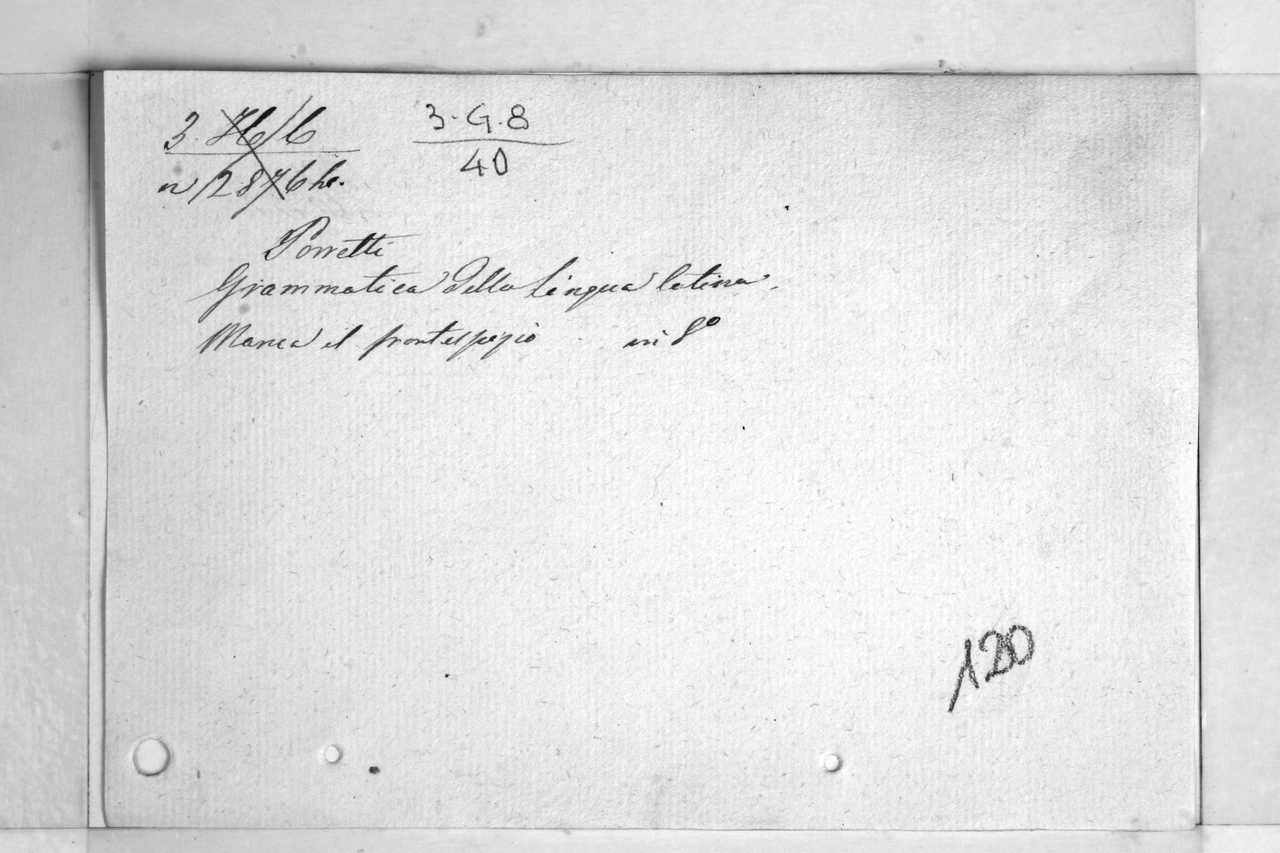 3. 
3·G.8
40
Porretti
Grammatica della lingua latina.
Manca il frontespizio in 8º
120